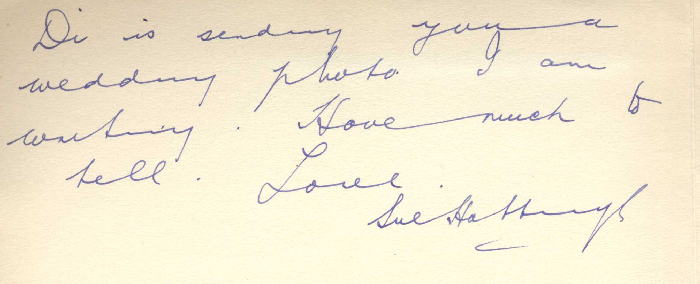 Di is sending you a
wedding photo I am
writing. Have much to
tell. Love.
Sue